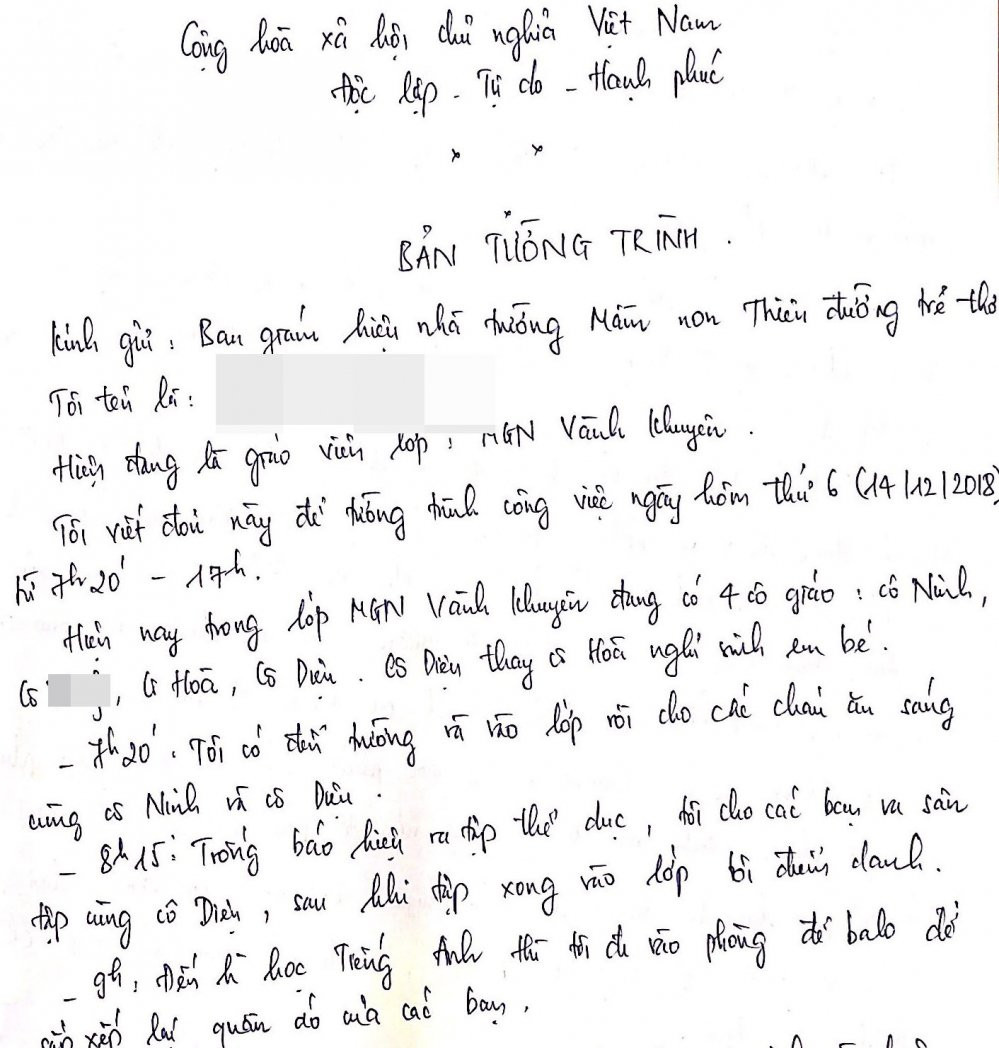 Cộng hòa xã hội chủ nghĩa Việt Nam
Độc lập - Tự do - Hạnh phúc
x x
BẢN TƯỜNG TRÌNH.
Kính gửi: Ban giám hiệu nhà trường Mầm non Thiên đường trẻ thơ
Tôi tên là:
Hiện đang là giáo viên lớp: MGN Vành Khuyên.
Tôi viết đơn này để tường trình công việc ngày hôm thứ 6 (14/12/2018)
từ 7h20' - 17h.
Hiện nay trong lớp MGN Vành Khuyên đang có 4 cô giáo: cô Ninh,
Cô, Cô Hoà, Cô Diện. Cô Diện thay cô Hoà nghỉ sinh em bé.
- 7h20'. Tôi có đến trường và vào lớp rồi cho các cháu ăn sáng
cùng cô Ninh và cô Diện.
- 8h15: Trống báo hiệu ra tập thể dục, tôi cho các bạn ra sân
tập cùng cô Diện, sau khi tập xong vào lớp tôi điểm danh.
- 9h, Đến h học Tiếng Anh thì tôi đi vào phòng để balo để
sắp xếp lại quần áo của các bạn.